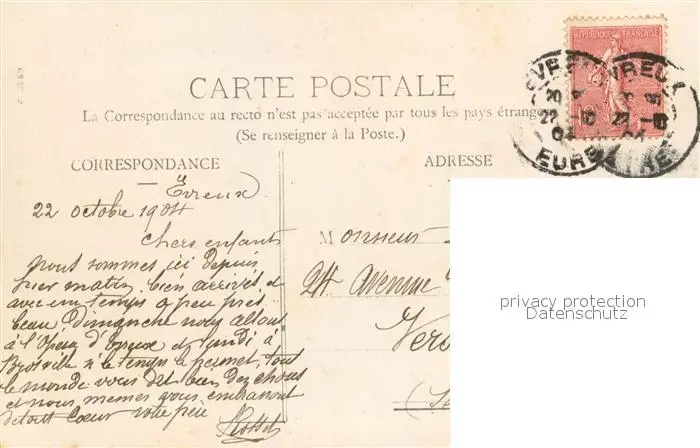 RÉPUBLIQUE FRANÇAISE
CARTE POSTALE
La Correspondance au recto n'est pas acceptée par tous les pays étrang
(Se renseigner à la Poste.)
CORRESPONDANCE
ADRESSE
EVREUX
EURE
Evreux
22 octobre 1904
chers enfants
nous sommes ici depuis
hier matin bien arrivés, et
avec un temps a peu pres
beau. Dimanche nous allons
à l'Opéra d'Evreux et lundi à
Brosville si le temps le permet, tout
le monde vous dit bien des choses
et nous memes vous embrassont
de tout Coeur votre père
Monsieur
24 Avenue
Vers
privacy protection
Datenschutz